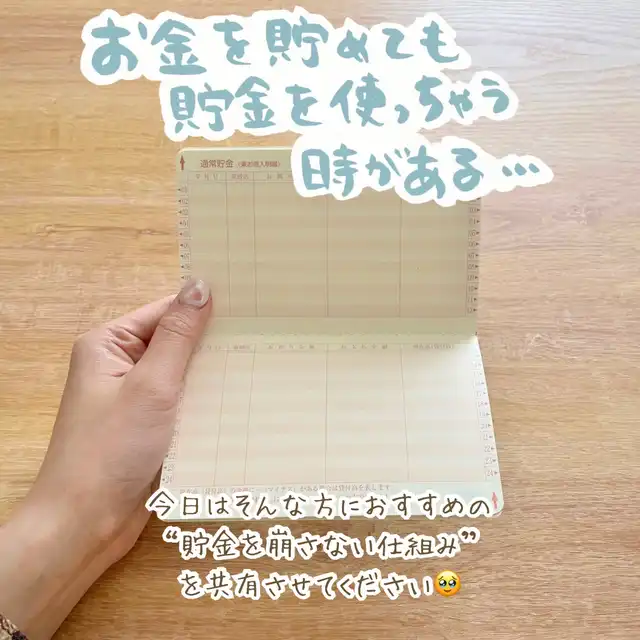 お金を貯めても
貯金を使っちゃう
時がある…
通常貯金
今日はそんな方におすすめの
“貯金を崩さない仕組み”
を共有させてください🥹